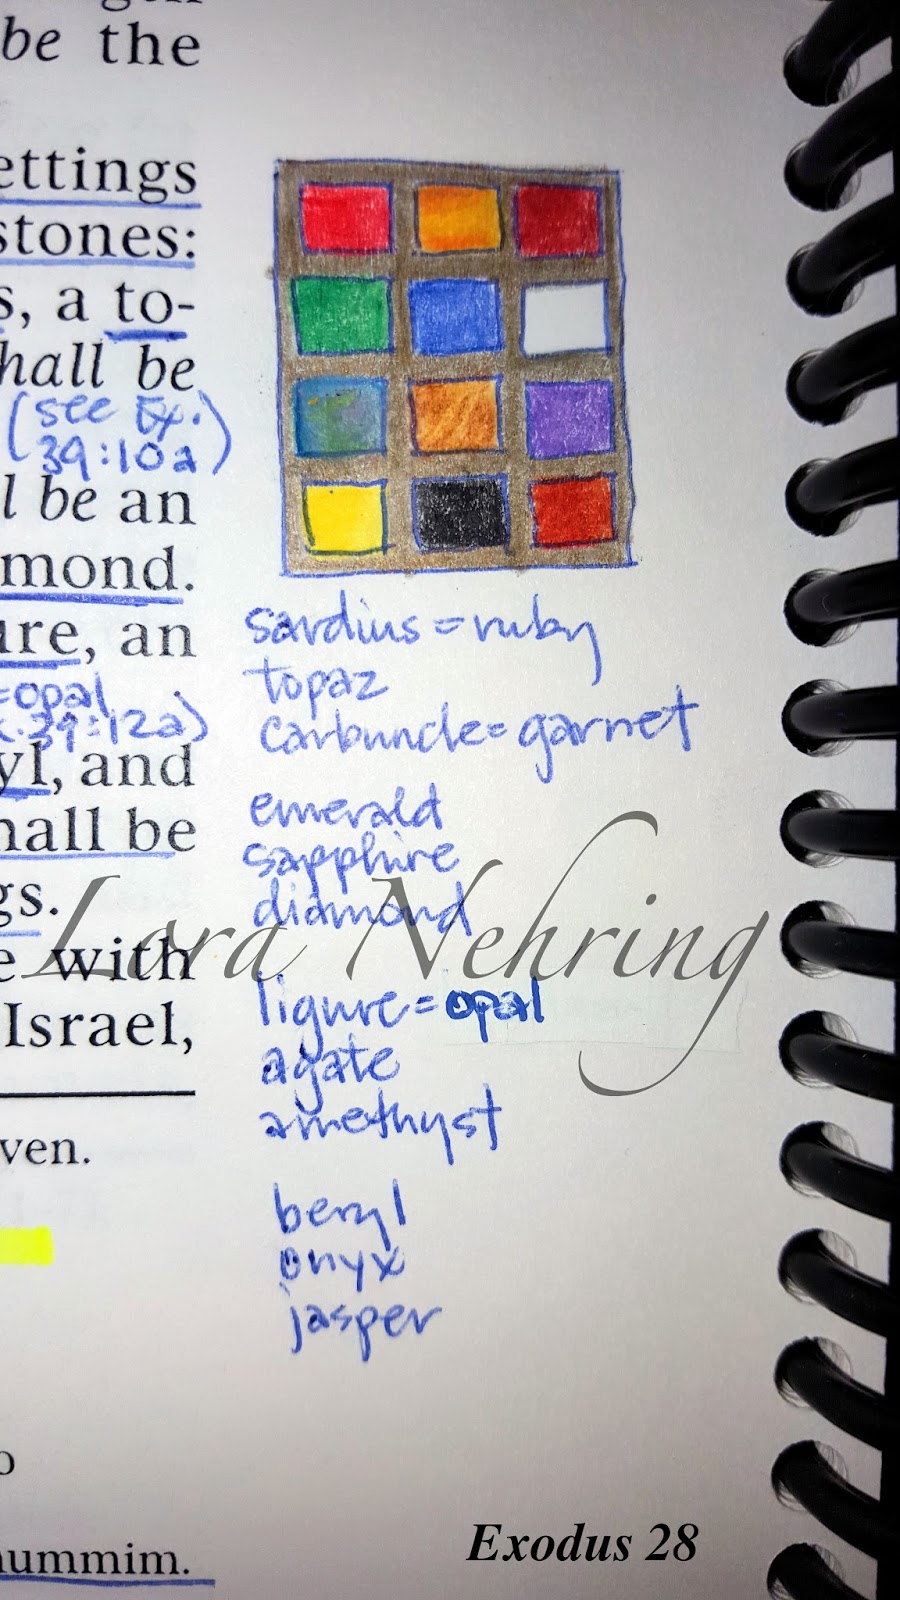 be the
ettings
stones:
s, a to-
hall be
(see Ex.
39:10a)
l be an
mond.
ure, an
=opal
39:12a)
yl, and
hall be
gs.
e with
Israel,
ven.
o
ummim.
sardius = ruby
topaz
carbuncle = garnet
emerald
sapphire
diamond
Lora Nehring
ligure = opal
agate
amethyst
beryl
onyx
jasper
Exodus 28